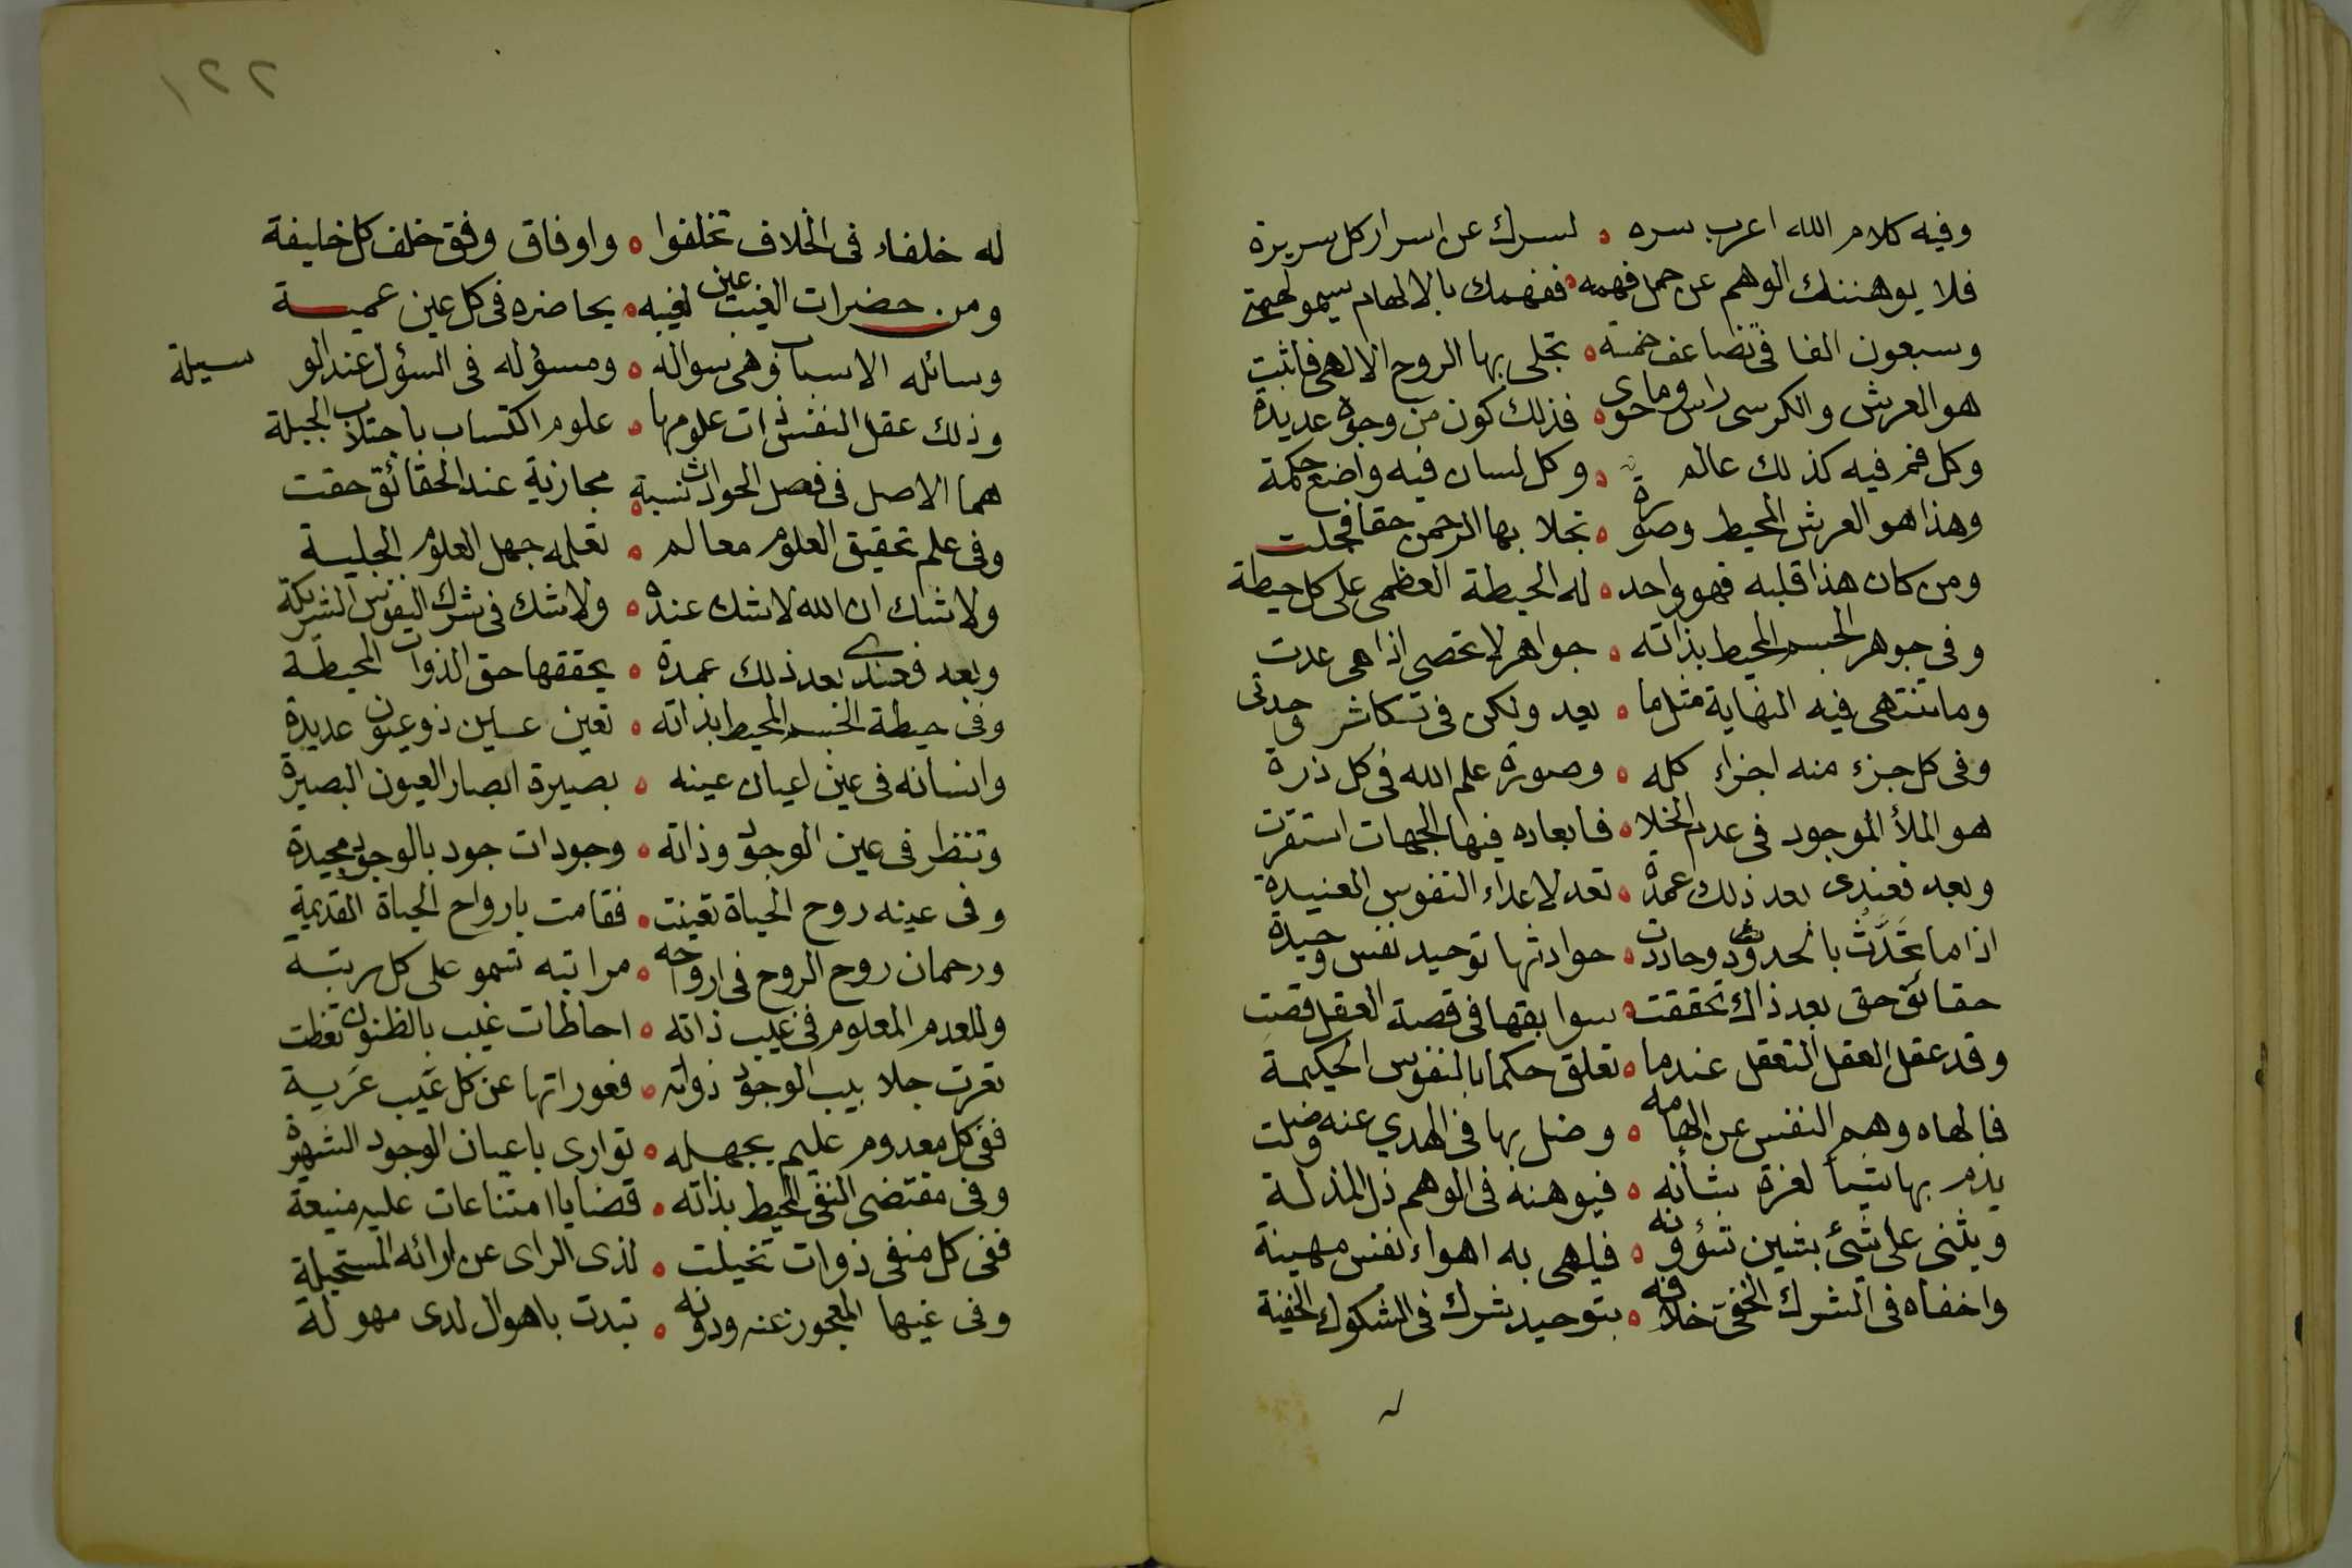 وفيه كلام الله اعرب سره ه لسرك عن اسرار كل سريرة
فلا يوهننك الوهم عن حمل فهمه ه ففهمك بالالهام يسمو لحيمتى
وسبعون الفا فى تضاعف خمسة ه تجلى بها الروح الالهى فاثبت
هو العرش والكرسى راس وماى حوه ه فذلك كون من وجوه عديدة
وكل فم فيه كذلك عالم ه وكل لسان فيه واضع حكمة
وهذا هو العرش المحيط وصورة ه تجلا بها الرحمن حقا فجلت
ومن كان هذا قلبه فهو واحد ه له الحيطة العظمى على كل حيطة
وفى جوهر الجسم المحيط بذاته ه جواهر لا تحصى اذا هى عدت
وما تنتهى فيه النهاية مثل ما ه يعد ولكن فى تكاثر وحدتى
وفى كل جزء منه اجزاء كله ه وصورة علم الله فى كل ذرة
هو الملأ الموجود فى عدم الخلا ه فابعاده فيها الجهات استقرت
وبعد فعندى بعد ذلك عمدة ه تعد لاعداء النفوس العنيدة
اذا ما تحدث بالحدوث وحادت ه حوادثها توحيد نفس وحيدة
حقائق حق بعد ذاك تحققت ه سوابقها فى قصة العقل قصت
وقد عقل العقل التعقل عندما ه تعلق حكما بالنفوس الحكيمة
فالهاه وهم النفس عن الهامه ه وضل بها فى الهدي عنه وضلت
يذم بها شيأ لغرة شأنه ه فيوهنه فى الوهم ذل المذلة
ويثنى على شئ بشين شؤونه ه فيلهى به اهواء نفس مهينة
واخفاه فى الشرك الخفى خلافه ه بتوحيد شرك فى الشكوك الخفية
١٢٢
له خلفاء فى الخلاف تخلفوا ه واوفاق وفق خلف كل خليفة
ومن حضرات الغيب عين لغيبه ه يحاضره فى كل عين عميـة
وسائله الاسباب وهى سواله ه ومسؤله فى السؤل عند الوسيلة
وذلك عقل النفس ذات علومها ه علوم اكتساب باجتلاب الجبلة
هما الاصل فى فصل الحوادث نسبة ه مجازية عند الحقائق حقت
وفى علم تحقيق العلوم معالم ه تعلمه جهل العلوم الجلية
ولا شك ان الله لا شك عنده ه ولا شك فى شرك النفوس الشريكة
وبعد فعندى بعد ذلك عمدة ه يحققها حق الذوات المحيطة
وفى حيطة الجسم المحيط بذاته ه تعين عسلين ذوعيون عديدة
وانسانه فى عين اعيان عينه ه بصيرة ابصار العيون البصيرة
وتنظر فى عين الوجود وذاته ه وجودات جود بالوجود مجيدة
وفى عينه روح الحياة تعينت ه فقامت بارواح الحياة القديمة
ورحمان روح الروح فى ارواحه ه مراتبه تسمو على كل رتبة
وللعدم المعلوم فى غيب ذاته ه احاطات غيب بالظنون تغطت
تعرت جلابيب الوجود ذواته ه فعوراتها عن كل عيب عرية
ففى كل معدوم عليم بجهله ه توارى باعيان الوجود الشهيرة
وفى مقتضى النفى المحيط بذاته ه قضايا امتناعات عليه منيعة
ففى كل منفى ذوات تخيلت ه لذى الراى عن ارائه المستحيلة
وفى غيها المعجوز عنه ودونه ه تبدت باهوال لدى مهولة